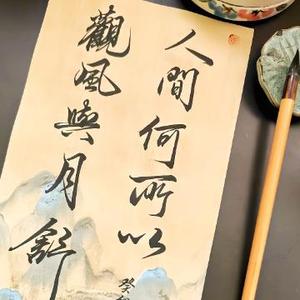 人間何所以
觀風與月舒
癸